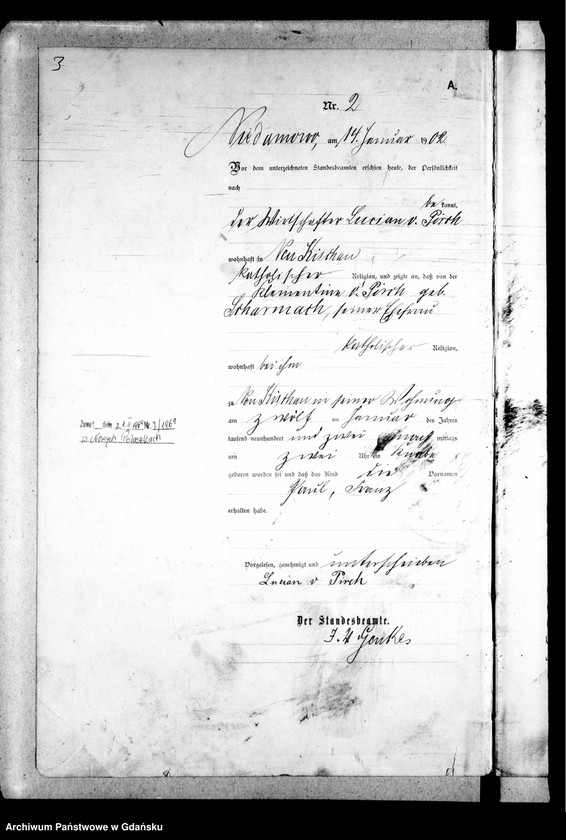 3
A.
Nr. 2
am 14. Januar 1902
Vor dem unterzeichneten Standesbeamten erschien heute, der Persönlichkeit
nach
be kannt,
der Wirtschafter Lucian v. Pirch
wohnhaft in Neu Kischau
katholischer Religion, und zeigte an, daß von der
Klementine v. Pirch geb.
seiner Ehefrau
katholischer Religion,
wohnhaft bei ihm
zu Neu Kischau in seiner Wohnung
am zwölf ten Januar des Jahres
tausend neunhundert und zwei nach mittags
um zwei Uhr ein Knabe
geboren worden sei und daß das Kind die Vornamen
Paul, Franz
erhalten habe.
Vorgelesen, genehmigt und unterschrieben
Lucian v Pirch
Der Standesbeamte.
J. V.
Zmarł dnia
w Nowych Polaszkach
Archiwum Państwowe w Gdańsku